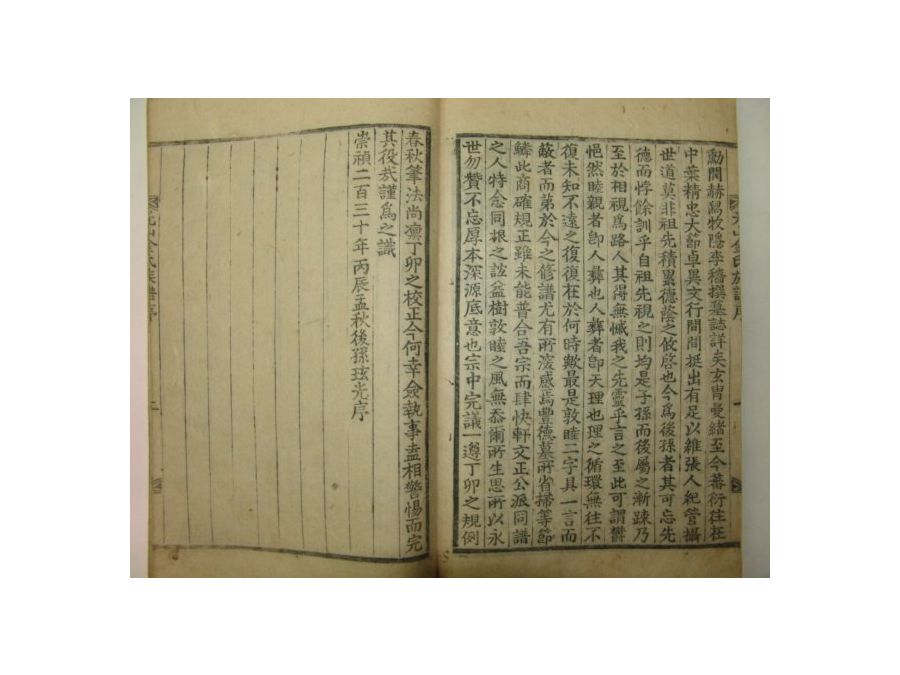 勳閥赫舃牧隱李穡撰墓誌詳矣玄胄曼緒至今蕃衍往在
中葉精忠大節卓異文行間間挺出有足以維張人紀管攝
世道莫非祖先積累德蔭之攸啓也今爲後孫者其可忘先
德而悖餘訓乎自祖先視之則均是子孫而後屬之漸踈乃
至於相視爲路人其得無憾我之先靈乎言之至此可謂欝
悒然睦親者卽人彝也人彝者卽天理也理之循環無往不
復未知不遠之復復在於何時歟最是敦睦二字具一言而
蔽者而第於今之修譜尤有所湥感焉豊德墓所省掃等節
鱗此商確規正雖未能普合吾宗而肆快軒文正公派同譜
之人特念同根之誼益樹敦睦之風無忝爾所生思所以永
世勿贊不忘厚本深源底意也宗中完議一遵丁卯之規例
春秋筆法尚凛丁卯之校正今何幸僉執事盍相警惕而完
其役哉謹爲之識
崇禎二百三十年丙辰孟秋後孫玹光序
光山金氏族譜序